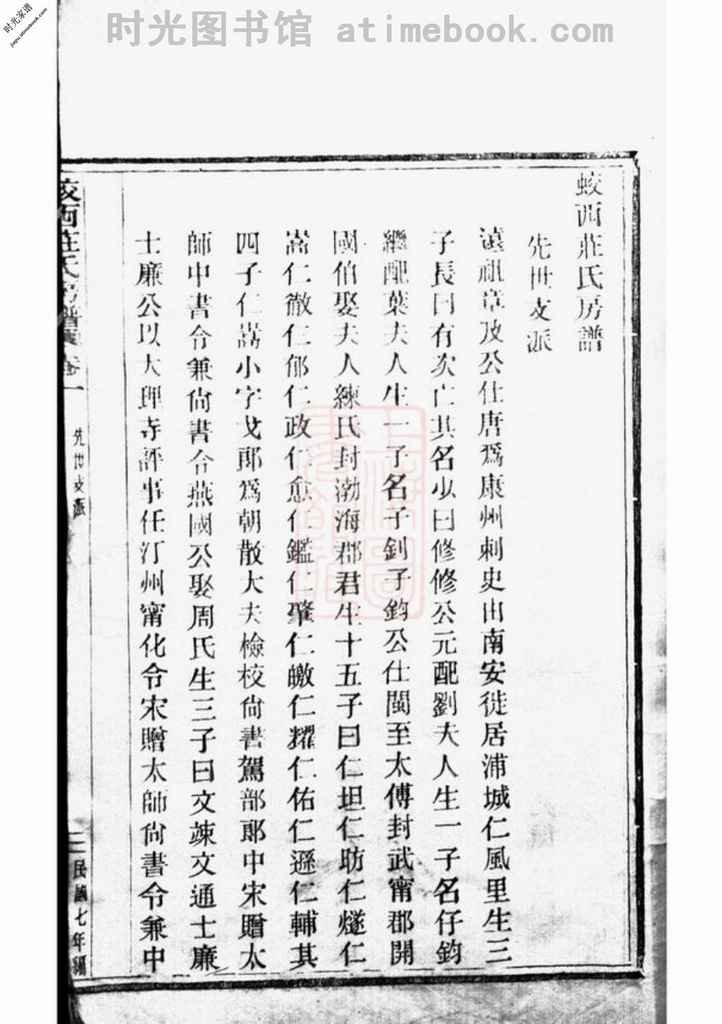 时光图书馆 atimebook.com
时光家谱
jiapu.atimebook.com
蛟西莊氏房譜
先世支派
遠祖章及公仕唐爲康州刺史由南安徙居浦城仁風里生三
子長曰有次亡其名少曰修修公元配劉夫人生一子名仔鈞
繼配葉夫人生一子名子釗子鈞公仕閩至太傅封武甯郡開
國伯娶夫人練氏封渤海郡君生十五子曰仁坦仁昉仁燧仁
嵩仁徹仁郁仁政仁愈仁鑑仁肇仁皦仁耀仁佑仁遜仁輔其
四子仁嵩小字戈郎爲朝散大夫檢校尙書駕部郎中宋贈太
師中書令兼尙書令燕國公娶周氏生三子曰文竦文通士廉
士廉公以大理寺評事任汀州甯化令宋贈太師尙書令兼中
蛟西莊氏房譜 卷一
先世支派
一
民國七年編